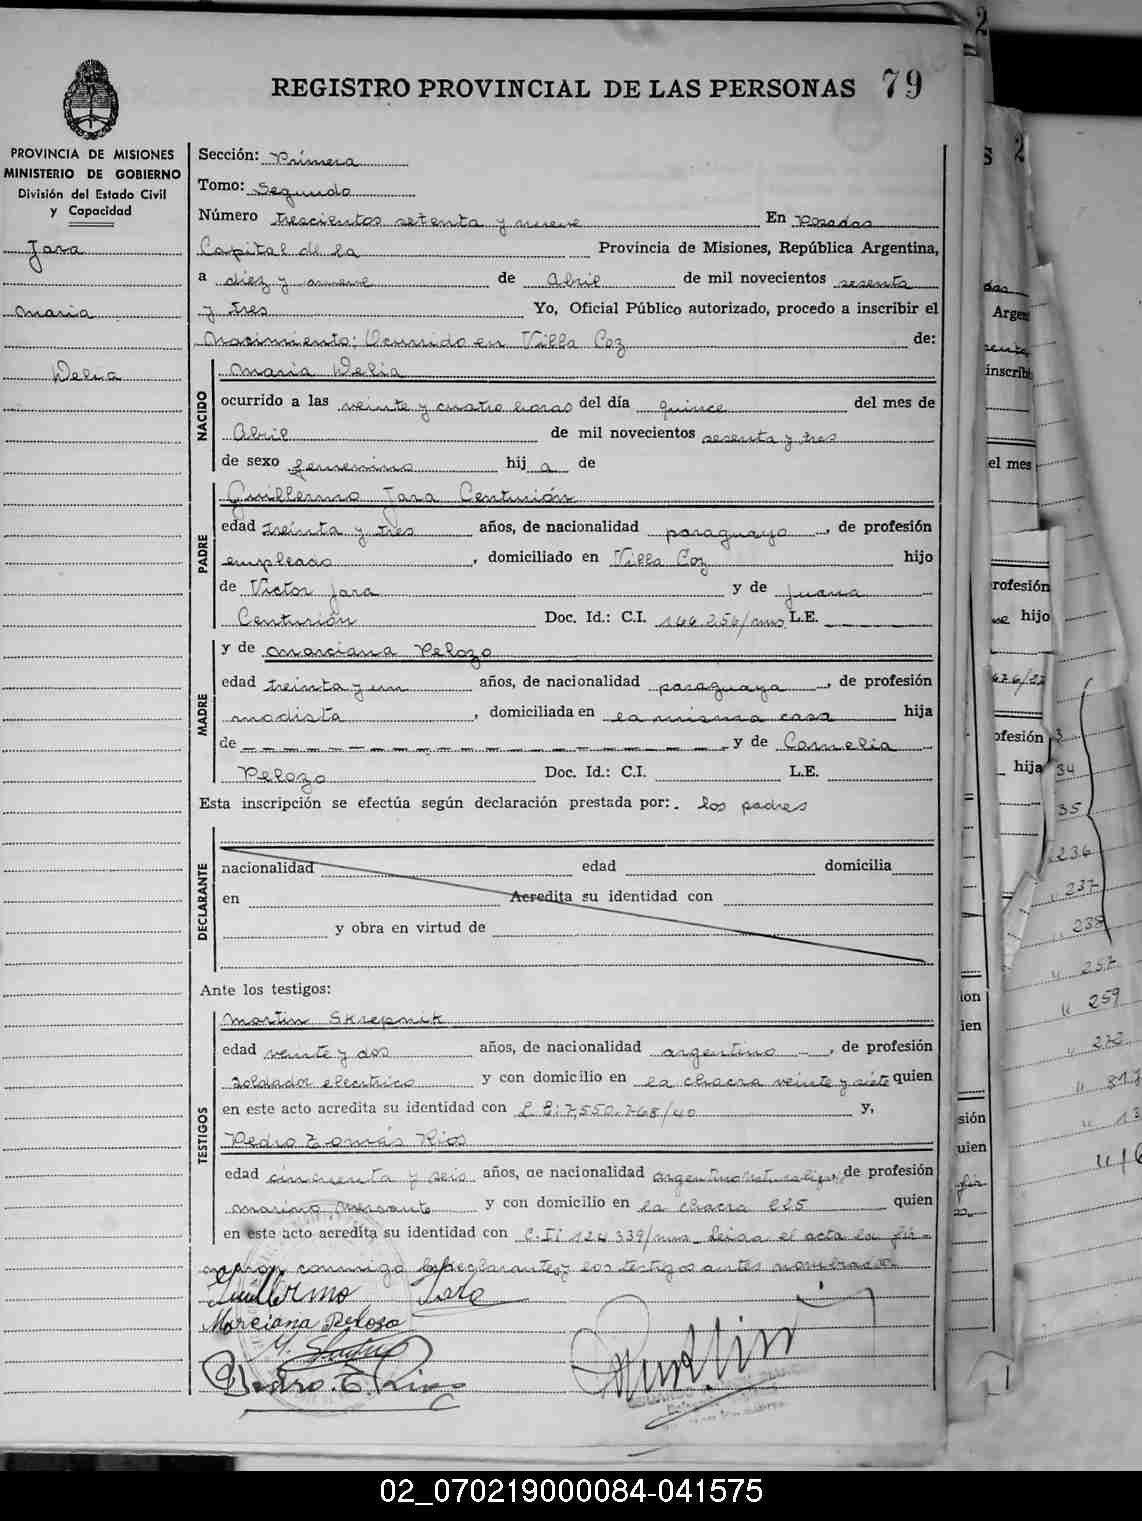 REGISTRO PROVINCIAL DE LAS PERSONAS 79
PROVINCIA DE MISIONES
MINISTERIO DE GOBIERNO
División del Estado Civil
y Capacidad
Jara
Maria
Delia
Sección: Primera
Tomo: Segundo
Número trescientos setenta y nueve En Posadas
Capital de la Provincia de Misiones, República Argentina,
a diez y nueve de Abril de mil novecientos sesenta
y tres Yo, Oficial Público autorizado, procedo a inscribir el
Nacimiento: Ocurrido en Villa Coz de:
NACIDO
Maria Delia
ocurrido a las veinte y cuatro horas del día quince del mes de
Abril de mil novecientos sesenta y tres
de sexo femenino hij a de
PADRE
Guillermo Jara Centurión
edad treinta y tres años, de nacionalidad paraguayo, de profesión
empleado, domiciliado en Villa Coz hijo
de Victor Jara y de Juana
Centurión Doc. Id.: C.I. 166.256/mnes L.E.
MADRE
y de Marciana Pelozo
edad treinta y un años, de nacionalidad paraguaya, de profesión
modista, domiciliada en la misma casa hija
de y de Cornelia
Pelozo Doc. Id.: C.I. L.E.
Esta inscripción se efectúa según declaración prestada por: los padres
DECLARANTE
nacionalidad edad domicilia
en Acredita su identidad con
y obra en virtud de
Ante los testigos:
TESTIGOS
Martin Skrepnik
edad veinte y dos años, de nacionalidad argentino, de profesión
soldador electrico y con domicilio en la chacra veinte y siete quien
en este acto acredita su identidad con L E: 7,550.768/40 y,
Pedro Tomás Rios
edad cincuenta y seis años, de nacionalidad argentino naturaliz, de profesión
marino mercante y con domicilio en la chacra 225 quien
en este acto acredita su identidad con C.I: 124.339/mnes Leida el acta la fir-
maron conmigo los declarantes y los testigos antes nombrados
Guillermo Jara
Marciana Pelozo
Pedro. T. Rios
02_070219000084-041575